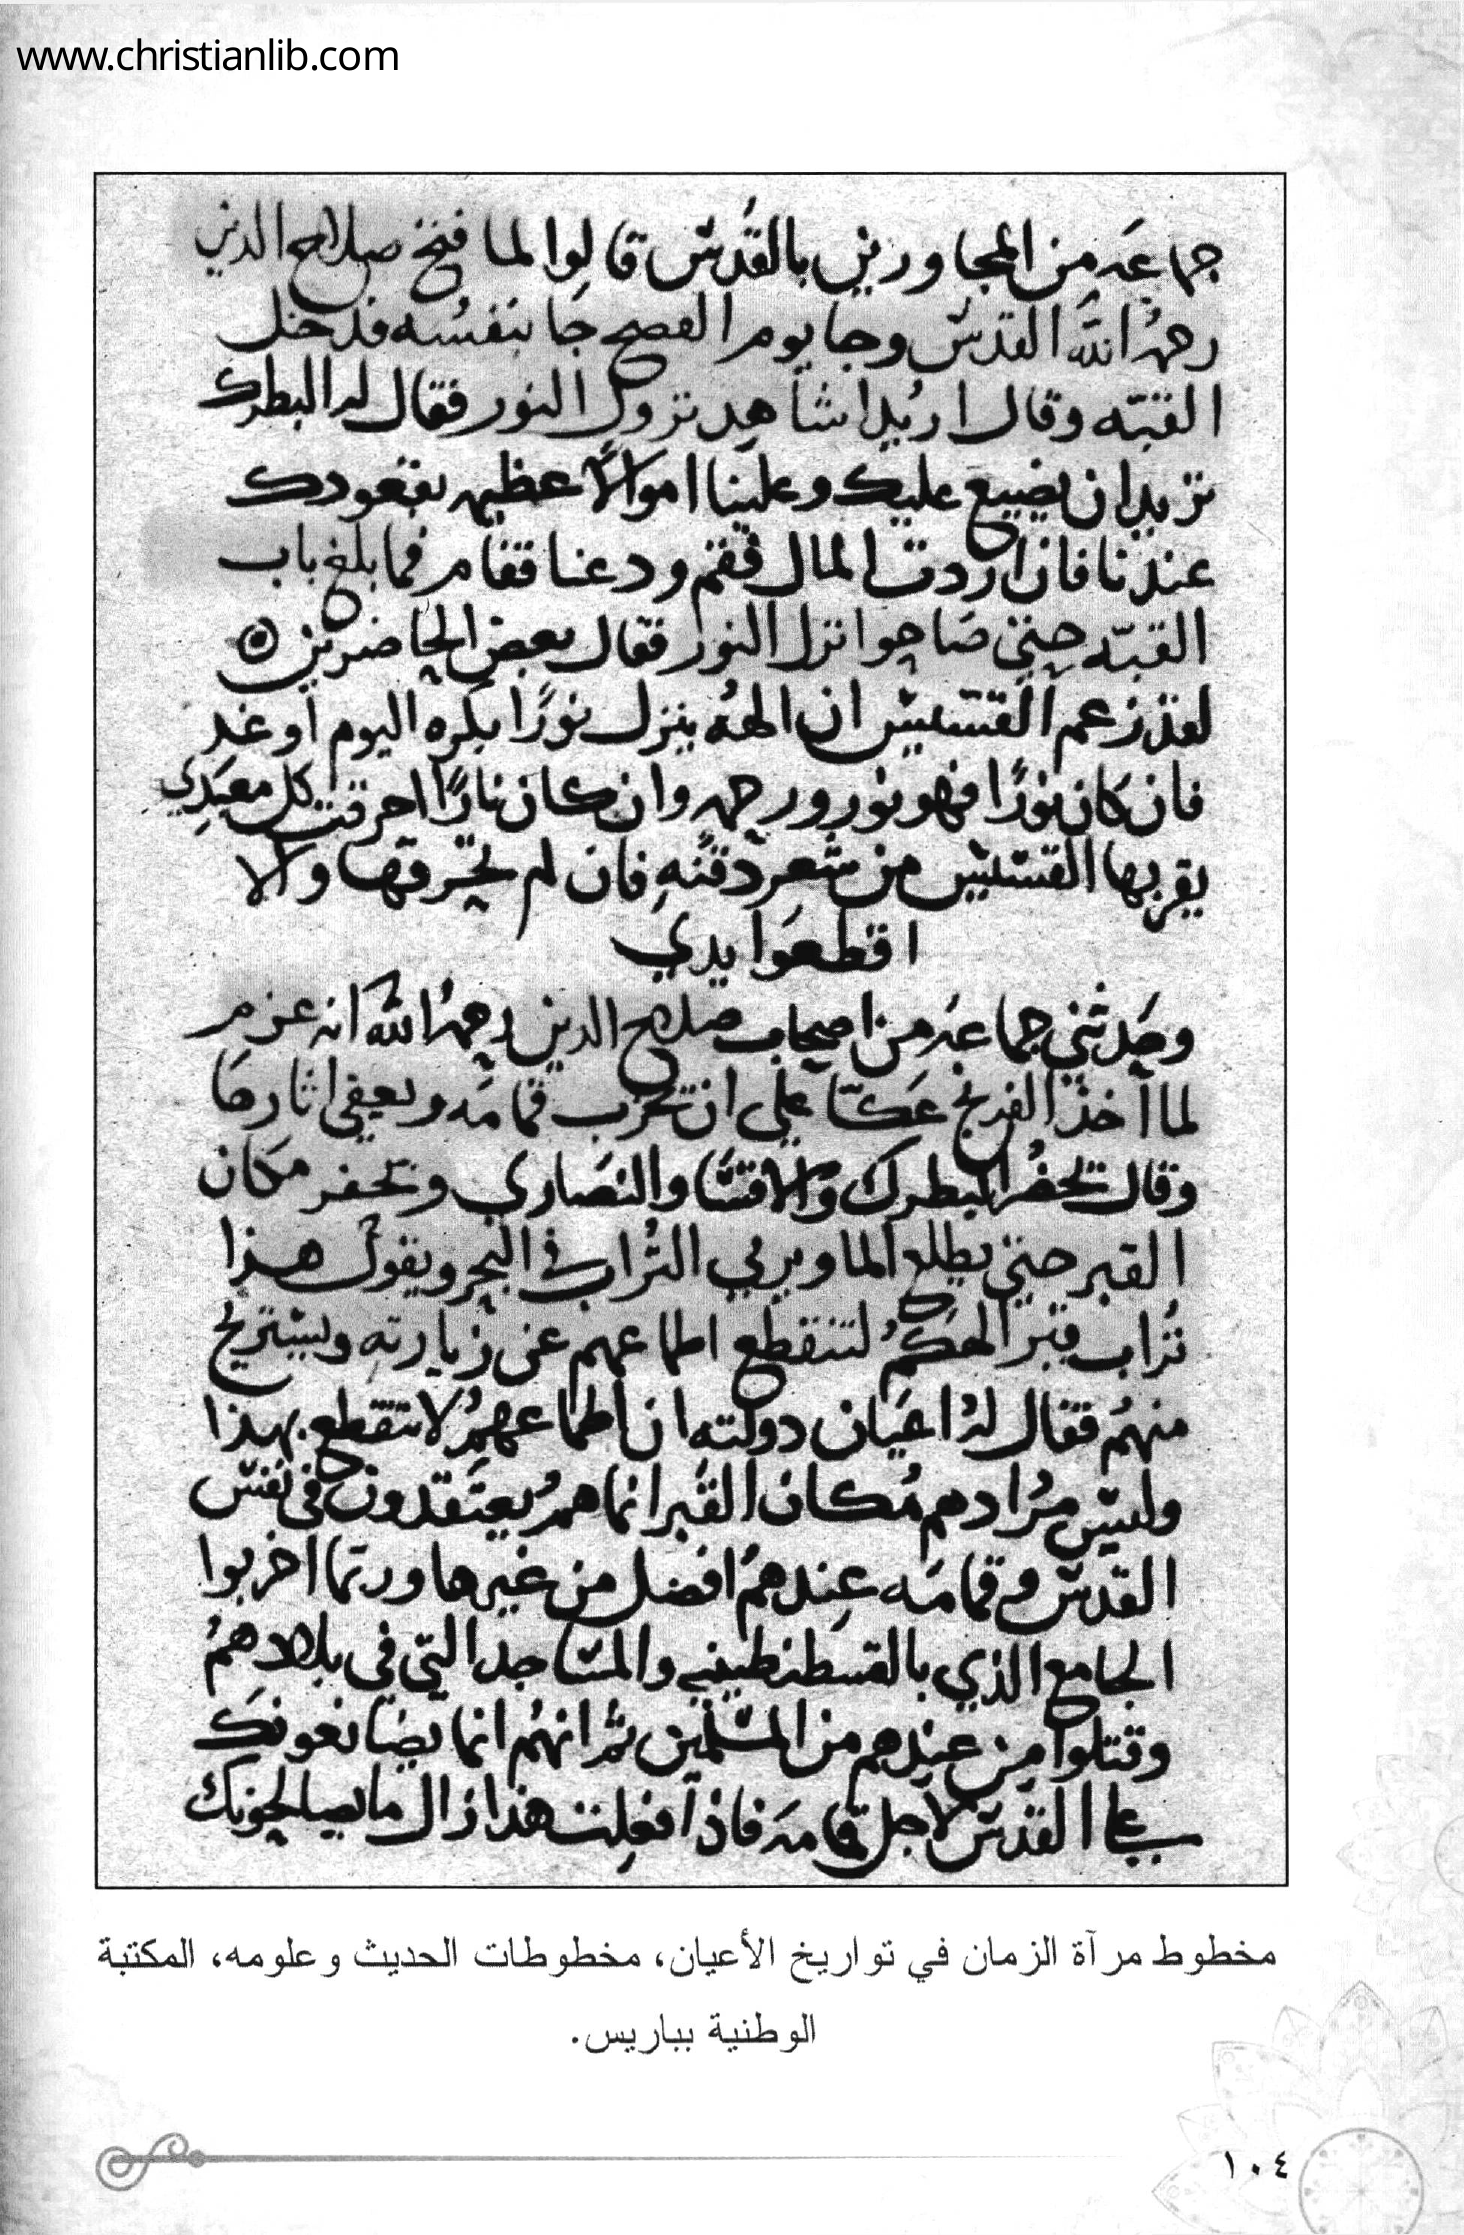 www.christianlib.com
جماعه من المجاورين بالقدس قالوا لما فتح صلاح الدين
رحمه الله القدس وجا يوم الفصح جا بنفسه فدخل
القبّه وقال اريد اشاهد نزول النور فقال له البطرك
تريد ان يضيع عليك وعلينا اموالاً عظيمه بقعودك
عندنا فان اردت المال فقم ودعنا فقام فما بلغ باب
القبّه حتى صاحوا نزل النور فقال بعض الحاضرين
لقد زعم القسّيس ان الهه ينزل نورًا بكره اليوم او غد
فان كان نورًا فهو نور ورحمه وان كان نارًا احرقت كل معبدي
يقربها القسّيس من شعر دقنه فان لم تحرقها والا
اقطعوا يدي
وحدثني جماعه من اصحاب صلاح الدين رحمه الله انه عزم
لما اخذ الفرنج عكّا على ان تخرب قمامه ويعفي اثارها
وقال تحضر البطرك والاقسّا والنصارى وتحفر مكان
القبر حتى يطلع الما ويرمي التراب في البحر ويقول هذا
تراب قبر الهكم لتنقطع اطماعهم عن زيارته ويستريح
منهم فقال له اعيان دولته ان اطماعهم لا تنقطع بهذا
وليس مرادهم مكان القبر انما هم يعتقدون في نفس
القدس وقمامه عندهم افضل من غيرها وربما اخربوا
الجامع الذي بالقسطنطينيه والمساجد التي في بلادهم
وقتلوا من عندهم من المسلمين ثم انهم انما يصانعونك
على القدس لاجل قمامه فاذا فعلت هذا زال ما يصالحونك
مخطوط مرآة الزمان في تواريخ الأعيان، مخطوطات الحديث وعلومه، المكتبة
الوطنية بباريس.
١٠٤